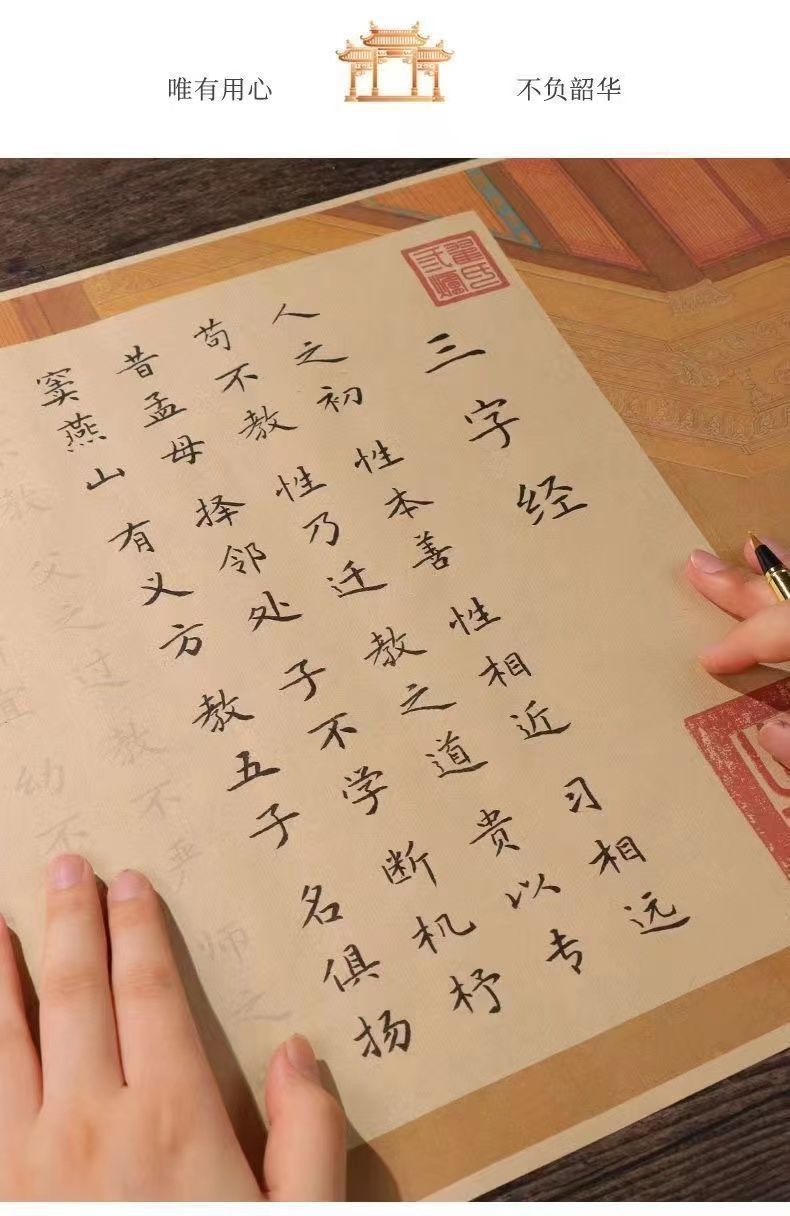 唯有用心
不负韶华
三字经
人之初 性本善 性相近 习相远
苟不教 性乃迁 教之道 贵以专
昔孟母 择邻处 子不学 断机杼
窦燕山 有义方 教五子 名俱扬
教 父之过 教不严 师之
宜 幼不